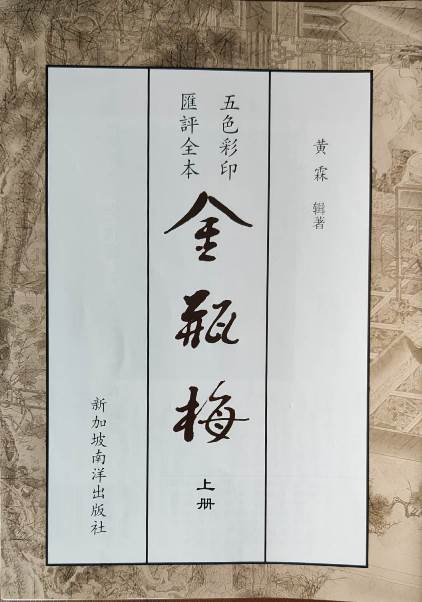 黄霖 辑著
五色彩印
匯評全本
金瓶梅
上册
新加坡南洋出版社